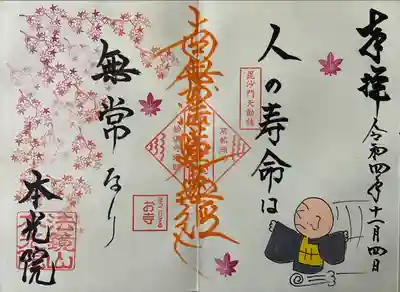 奉拝 令和四年十一月四日
人の寿命は
毘沙門天勧請
南無妙法蓮華経
無常なり
お寺
本光院